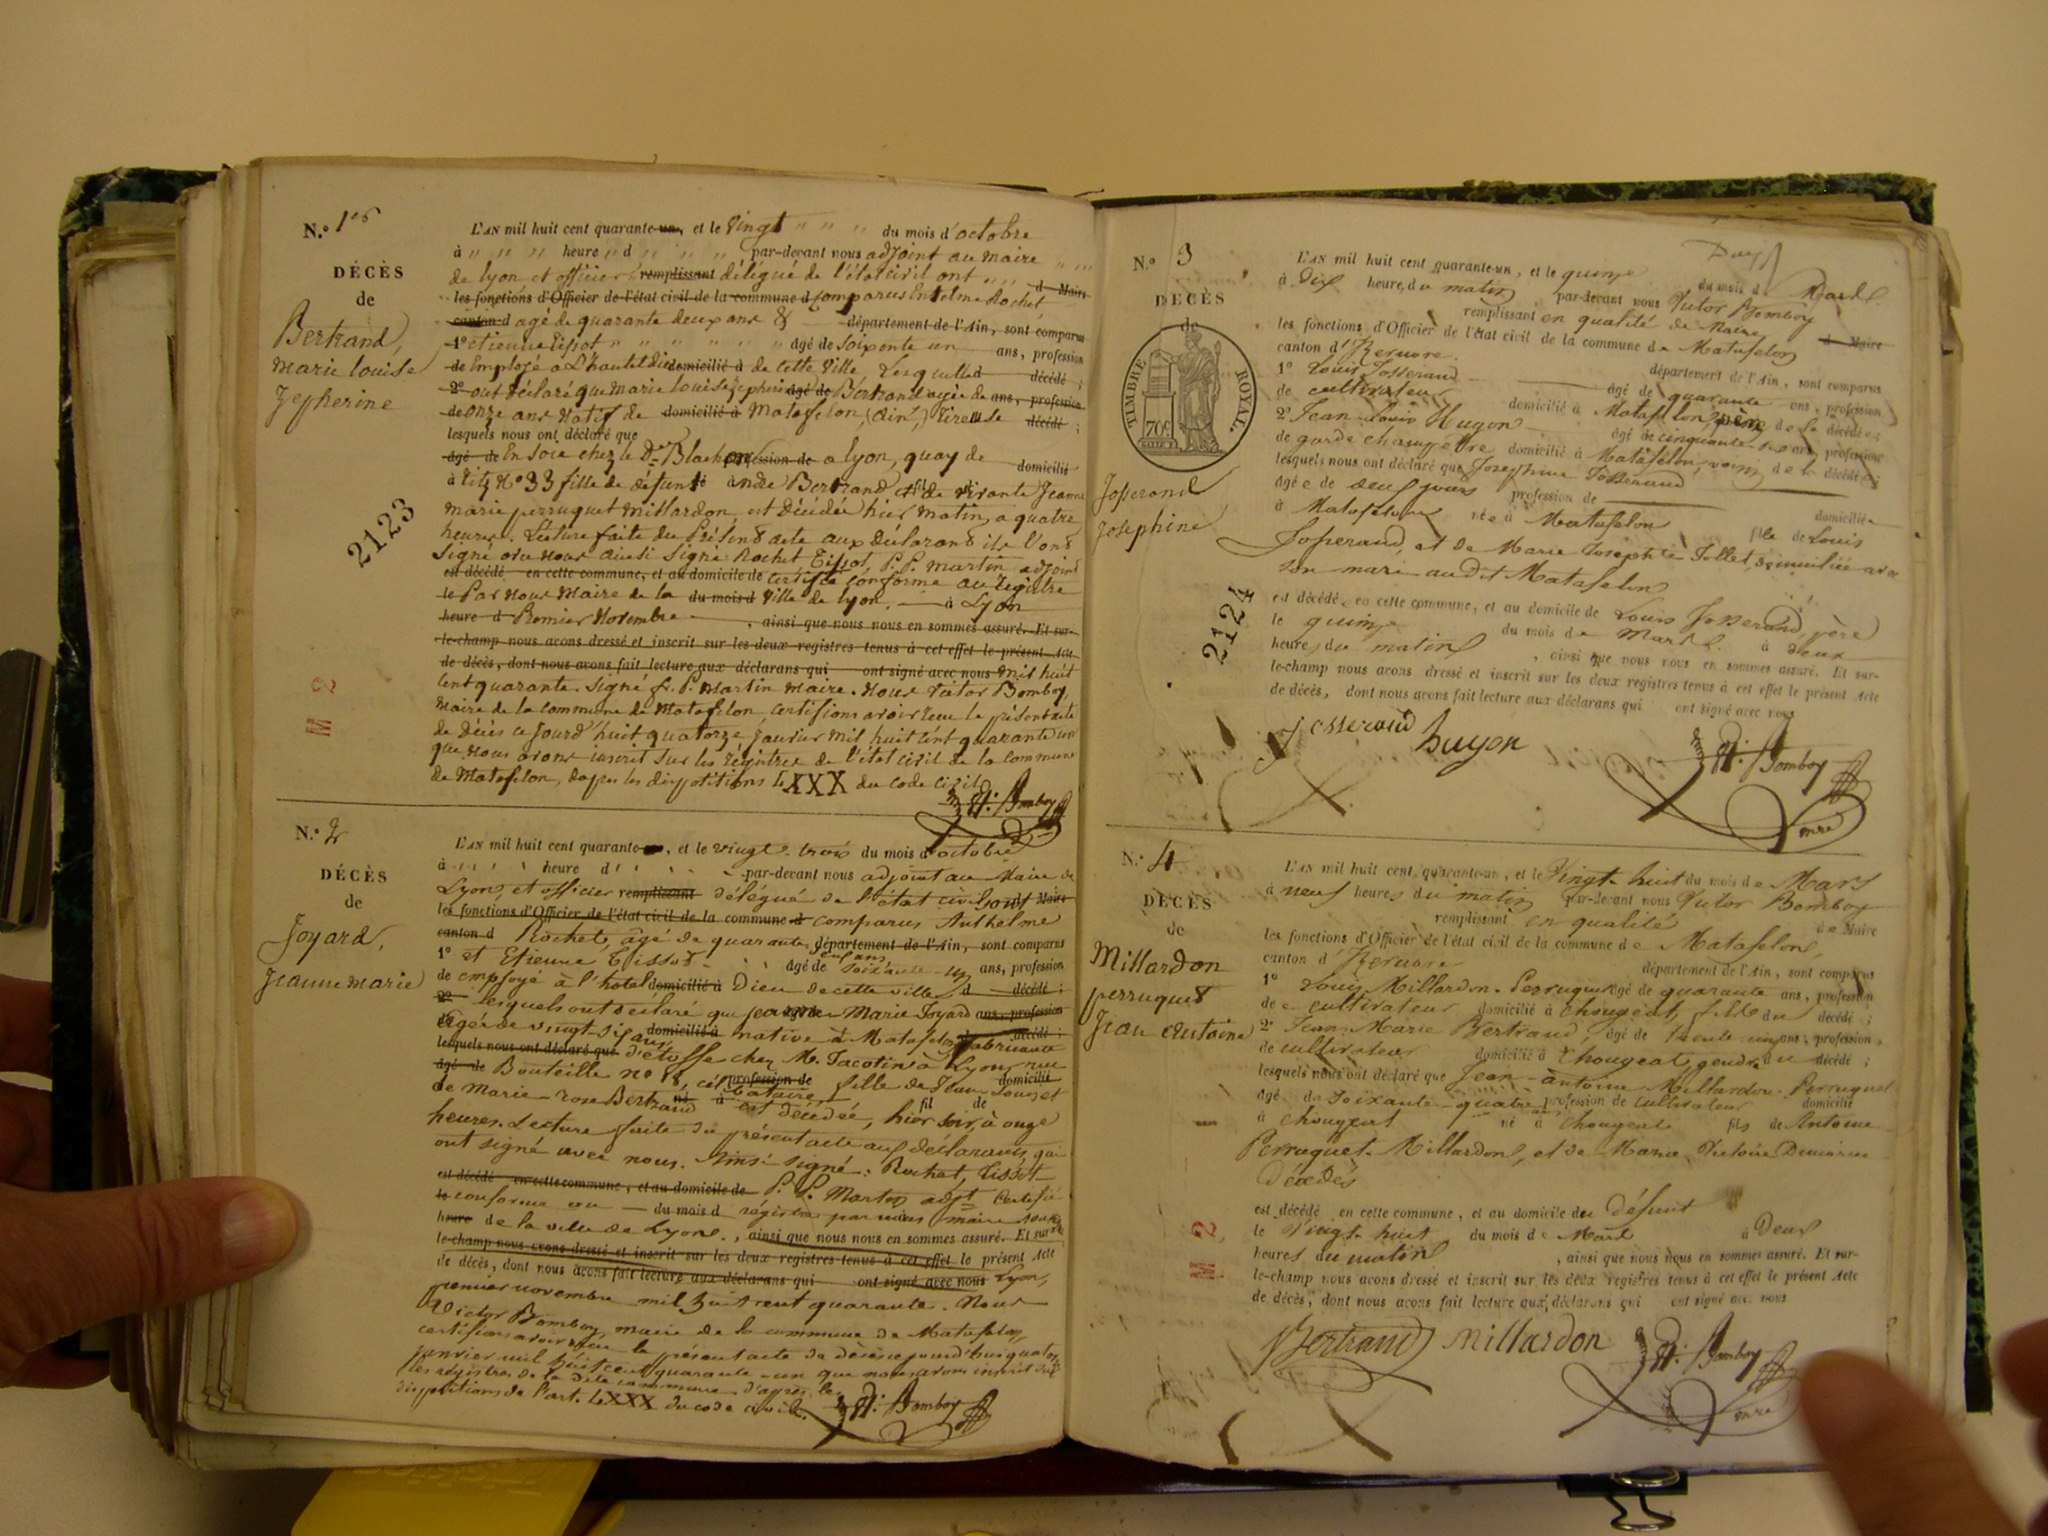 N.° 1er
DÉCÈS
de
Bertrand,
marie louise
Zepherine
2123
L'AN mil huit cent quarante-un, et le vingt " " " du mois d'octobre
à " " " heure " d " " " " par-devant nous adjoint au maire " "
de lyon et officier remplissant délégué de l'état civil ont " " d Maire
les fonctions d'Officier de l'état civil de la commune d comparus Rochet,
canton d agé de quarante deux ans & département de l'Ain, sont comparus
1° etienne tissot " " " " " " agé de Soixante un ans, profession
de Employé a L'hautel dieu domicilié à de cette ville Lesquelles d décédé ;
2° ont déclaré que marie louise zepherine âgé de Bertrand agée de ans, profession
de onze ans Natif de domicilié à Matafelon, (ain,) tireuse décédé ;
lesquels nous ont déclaré que
âgé de En Soie chez le Sr Blachon profession de a lyon, quay de domicilié
à N° 33 fille de défunt né à andré Bertrand et fil de vivante Jeanne
marie perruquet millardon, est décédée hier matin, a quatre
heures. Lecture faite du Présent acte aux déclarants ils l'ont
signé avec nous ainsi signé Rochet Tissot, P. P. martin adjoint
est décédé en cette commune, et au domicile de certifié conforme au registre
le Par Nous Maire de la du mois d ville de lyon. à Lyon
heure d Premier Novembre , ainsi que nous nous en sommes assuré. Et sur-
le-champ nous avons dressé et inscrit sur les deux registres tenus à cet effet le présent Acte
de décès, dont nous avons fait lecture aux déclarans qui ont signé avec nous mil huit
cent quarante. Signé P. Martin maire. Nous Victor Bomboy,
Maire de la commune de Matafelon, certifions avoir reçu le présent acte
de décès ce jourd'huit quatorze janvier mil huit cent quarante un
que nous avons inscrit sur les régistres de l'état civil de la commune
de Matafelon, dapres les dispositions LXXX du code civil
Vr. Bomboy
M 2
N.° 2
DÉCÈS
de
Joyard,
Jeanne marie
L'AN mil huit cent quarante- , et le vingt-trois du mois d'octobre
à " " " heure d' " " " par-devant nous adjoint au Maire de
Lyon, et officier remplissant délégué de l'état civil ont d Maire
les fonctions d'Officier de l'état civil de la commune d comparus Anthelme
canton d Rochet, âgé de quarante département de l'Ain, sont comparus
1° et Etienne Tissot agé de Soixante-un ans, profession
de employé à l'hôtel domicilié à Dieu de cette ville d décédé ;
2° lesquels ont déclaré que jeanne Marie Joyard ans, profession
de agée de vingt-six ans, domicilié à native à Matafelon, fabricante décédé ;
lesquels nous ont déclaré que d'étoffe chez M. Jacotin à Lyon, rue
âgé de Bouteille no 18, célibataire, profession de fille de Jean-Louis et domicilié
de Marie-rose Bertrand né à est décédée, hier soir, à onze fil de
heures. Lecture faite du présent acte aux déclarants, qui
ont signé avec nous. Ainsi signé : Rochet, Tissot
est décédé en cette commune, et au domicile de P. P. Martin adjt Certifié
le conforme au du mois d régistre par nous maire
heure de la ville de Lyon. , ainsi que nous nous en sommes assuré. Et sur
le-champ nous avons dressé et inscrit sur les deux registres tenus à cet effet le présent Acte
de décès, dont nous avons fait lecture aux déclarans qui ont signé avec nous Lyon,
premier novembre mil huit cent quarante. Nous
Victor Bomboy, maire de la commune de Matafelon,
certifions avoir reçu le présent acte de décès ce jourd'hui quatorze
janvier mil huit cent quarante-un que nous avons inscrit sur
les régistres de la dite commune d'après les
dispositions de l'art. LXXX du code civil.
Vr. Bomboy
N.° 3
DÉCÈS
de
TIMBRE ROYAL
70c
Josserand
Josephine
2124
L'AN mil huit cent quarante-un, et le quinze du mois d Mars
à Dix heure, du matin par-devant nous Victor Bomboy
remplissant en qualité de Maire d Maire
les fonctions d'Officier de l'état civil de la commune de Matafelon
canton d'Izernore. département de l'Ain, sont comparus
1° Louis Josserand âgé de quarante ans, profession
de cultivateur domicilié à Matafelon père de la décédée
2° Jean-Louis Hugon âgé de cinquante ans, profession
de garde champêtre domicilié à Matafelon, voisin de la décédée ;
lesquels nous ont déclaré que Josephine Josserand
âgée de deux jours profession de domiciliée
à Matafelon née à Matafelon fille de Louis
Josserand, et de Marie Josephte Tollet, domiciliée avec
son mari audit Matafelon
est décédé en cette commune, et au domicile de Louis Josserand, père
le quinze du mois de Mars. à deux
heure, du matin , ainsi que nous nous en sommes assuré. Et sur-
le-champ nous avons dressé et inscrit sur les deux registres tenus à cet effet le présent Acte
de décès, dont nous avons fait lecture aux déclarans qui ont signé avec nous
Josserand hugon
Vr. Bomboy
mre
N.° 4
DÉCÈS
de
Millardon
perruquet
Jean Antoine
L'AN mil huit cent quarante-un, et le Vingt-huit du mois de Mars
à neuf heures du matin par-devant nous Victor Bomboy
remplissant en qualité de Maire
les fonctions d'Officier de l'état civil de la commune de Matafelon,
canton d'Izernore département de l'Ain, sont comparus
1° Louis Millardon-Perruquet âgé de quarante ans, profession
de cultivateur domicilié à Chougeat, fils du décédé ;
2° Jean-Marie Bertrand, âgé de trente-un ans, profession,
de cultivateur domicilié à Chougeat, gendre du décédé ;
lesquels nous ont déclaré que Jean-antoine Millardon-Perruquet
âgé de soixante-quatre ans profession de cultivateur domicilié
à Chougeat né à Chougeat fils de Antoine
Perruquet-Millardon, et de Marie Victoire
Décédés
est décédé en cette commune, et au domicile du défunt
le Vingt-huit du mois de Mars à Deux
heures du matin , ainsi que nous nous en sommes assuré. Et sur-
le-champ nous avons dressé et inscrit sur les deux registres tenus à cet effet le présent Acte
de décès, dont nous avons fait lecture aux déclarans qui ont signé avec nous
Bertrand Millardon
Vr. Bomboy
mre
M 2